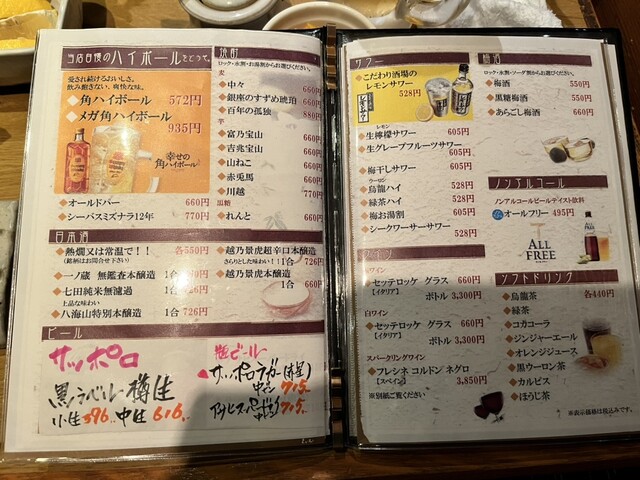 当店自慢のハイボールをどうぞ。
愛され続けるおいしさ。
飲み飽きない、爽快な味。
角ハイボール 572円
メガ角ハイボール
935円
幸せの
角ハイボール
オールドパー 660円
シーバスミズナラ12年 770円
焼酎
ロック・水割・お湯割からお選びください。
麦
中々 660円
銀座のすずめ琥珀 660円
百年の孤独 880円
芋
富乃宝山 660円
吉兆宝山 660円
山ねこ 660円
赤兎馬 660円
川越 770円
黒糖
れんと 660円
日本酒
熱燗又は常温で!! 各550円
(銘柄はお問合せ下さい)
一ノ蔵 無鑑査本醸造 1合
七田純米無濾過 1合 726円
上品な味わい
八海山特別本醸造 1合 726円
越乃景虎超辛口本醸造
さらりとした味わい!! 1合 726円
越乃景虎本醸造
1合 660円
ビール
サッポロ
黒ラベル・樽生
小生396円 中生616円
瓶ビール
サッポロラガー(赤星)
中ビン 715円
アサヒスーパードライ
中ビン 715円
サワー
こだわり酒場の
レモンサワー
528円
レモン
生檸檬サワー 605円
生グレープフルーツサワー
605円
梅干しサワー 605円
ウーロン
烏龍ハイ 528円
緑茶ハイ 528円
梅お湯割 605円
シークワーサーサワー
528円
ワイン
赤ワイン
セッテロッケ グラス 660円
【イタリア】 ボトル 3,300円
白ワイン
セッテロッケ グラス 660円
【イタリア】 ボトル 3,300円
スパークリングワイン
フレシネ コルドン ネグロ
【スペイン】 3,850円
※別紙ご覧ください
梅酒
ロック・水割・ソーダ割からお選びください。
梅酒 550円
黒糖梅酒 550円
あらごし梅酒 660円
ノンアルコール
ノンアルコールビールテイスト飲料
オールフリー 495円
ALL
FREE
ソフトドリンク
烏龍茶 各440円
緑茶
コカコーラ
ジンジャーエール
オレンジジュース
黒ウーロン茶
カルピス
ほうじ茶
※表示価格は税込みです。